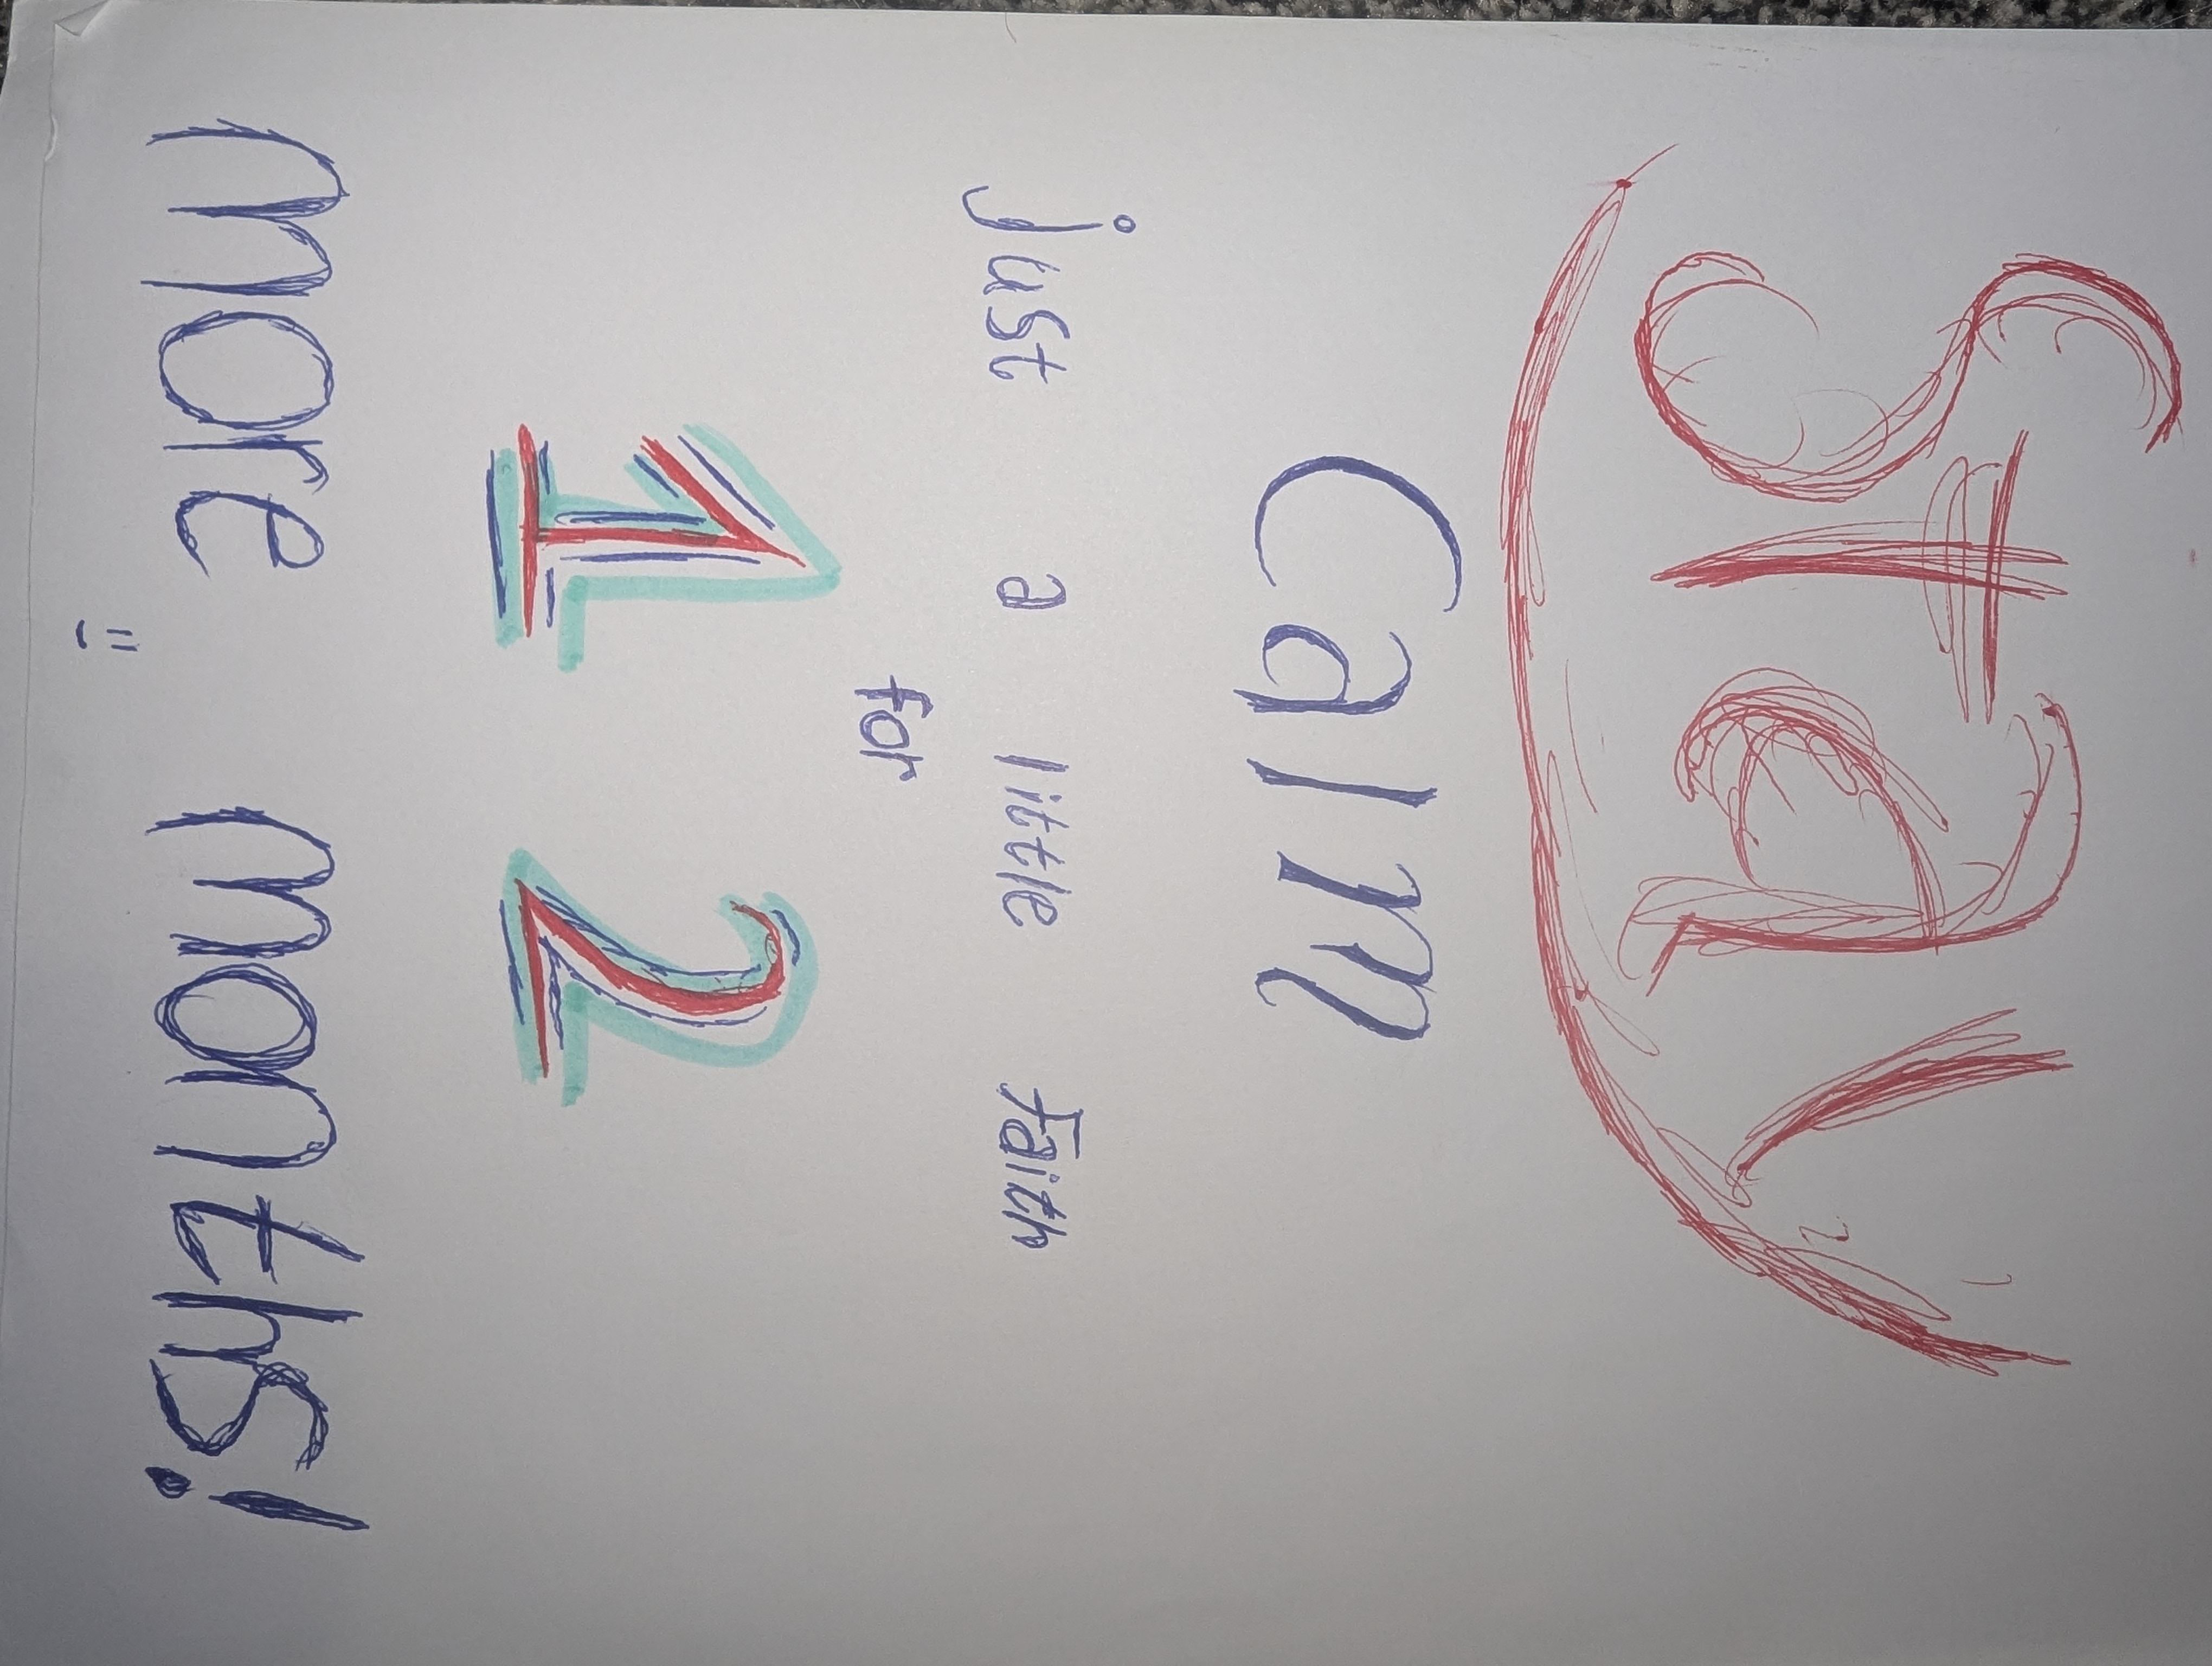 Stay
Calm
just a little Faith
for
12
more months!